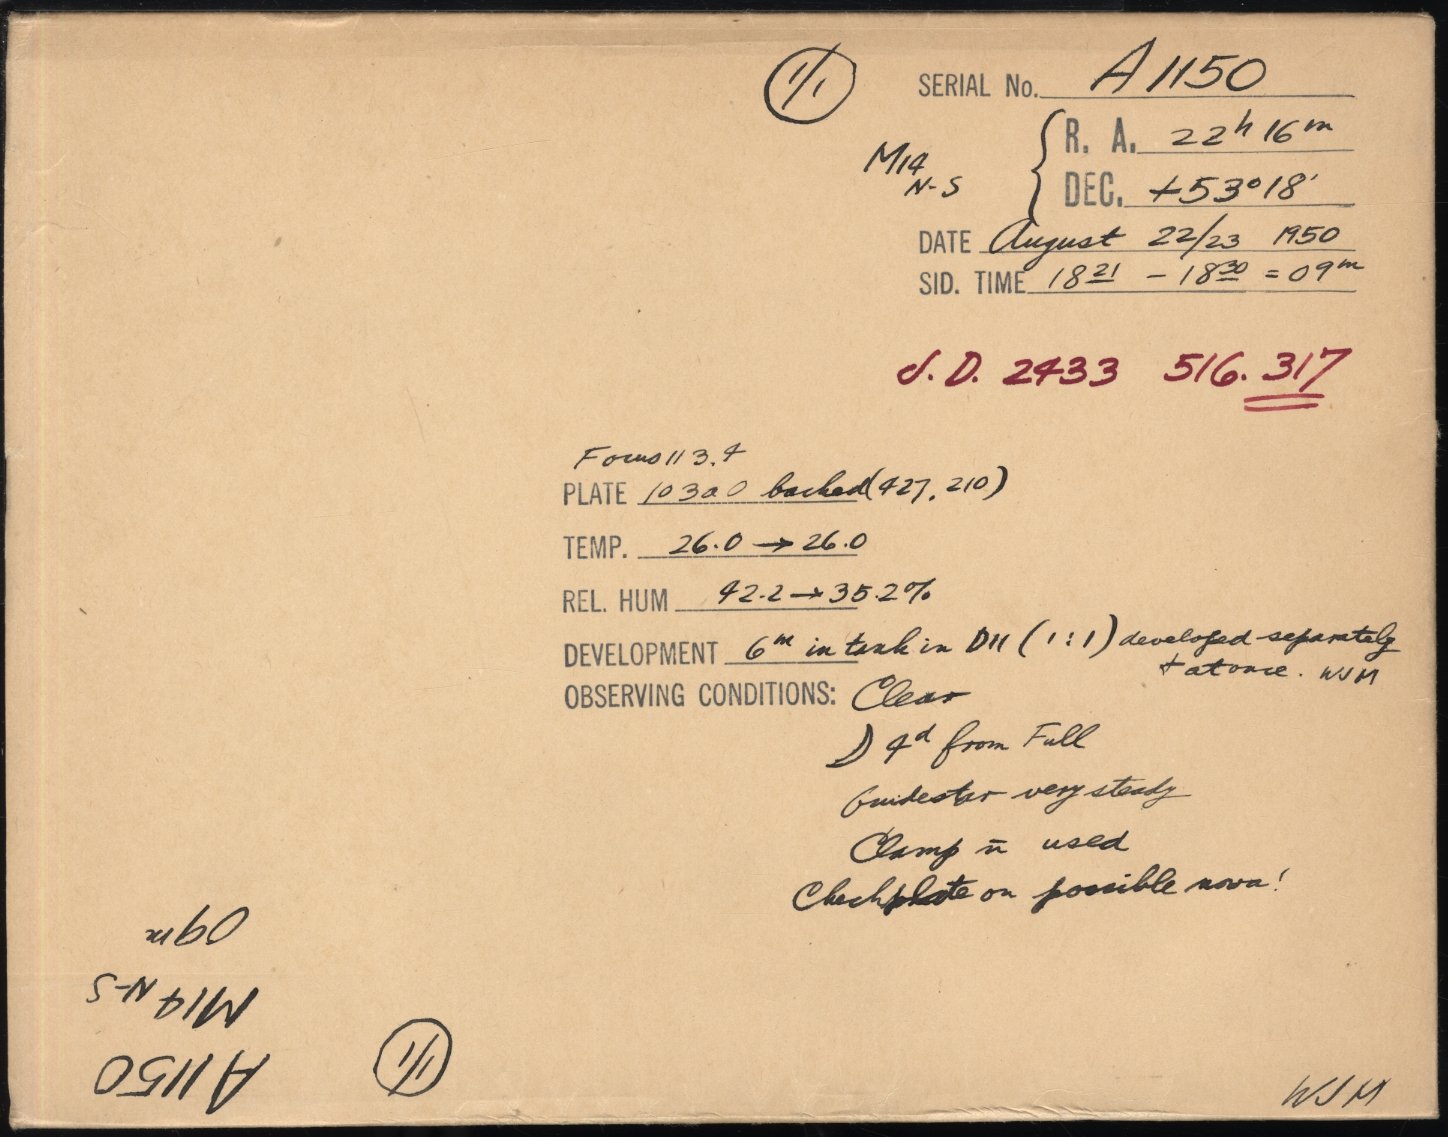 1/1
SERIAL No. A1150
R. A. 22h 16m
M14
N-S
DEC. +53°18'
DATE August 22/23 1950
SID. TIME 18 21 – 18 30 = 09m
J.D. 2433 516.317
Focus 113.4
PLATE 103a O backed (427, 210)
TEMP. 26.0 → 26.0
REL. HUM 42.2 → 35.2%
DEVELOPMENT 6m in tank in D11 (1:1) developed separately
+ at once. WJM
OBSERVING CONDITIONS: Clear
D 4d from Full
Guidestar very steady
Clamp n̄ used
Checkplate on possible nova!
09m
M14 N-S
A1150
1/1
WJM